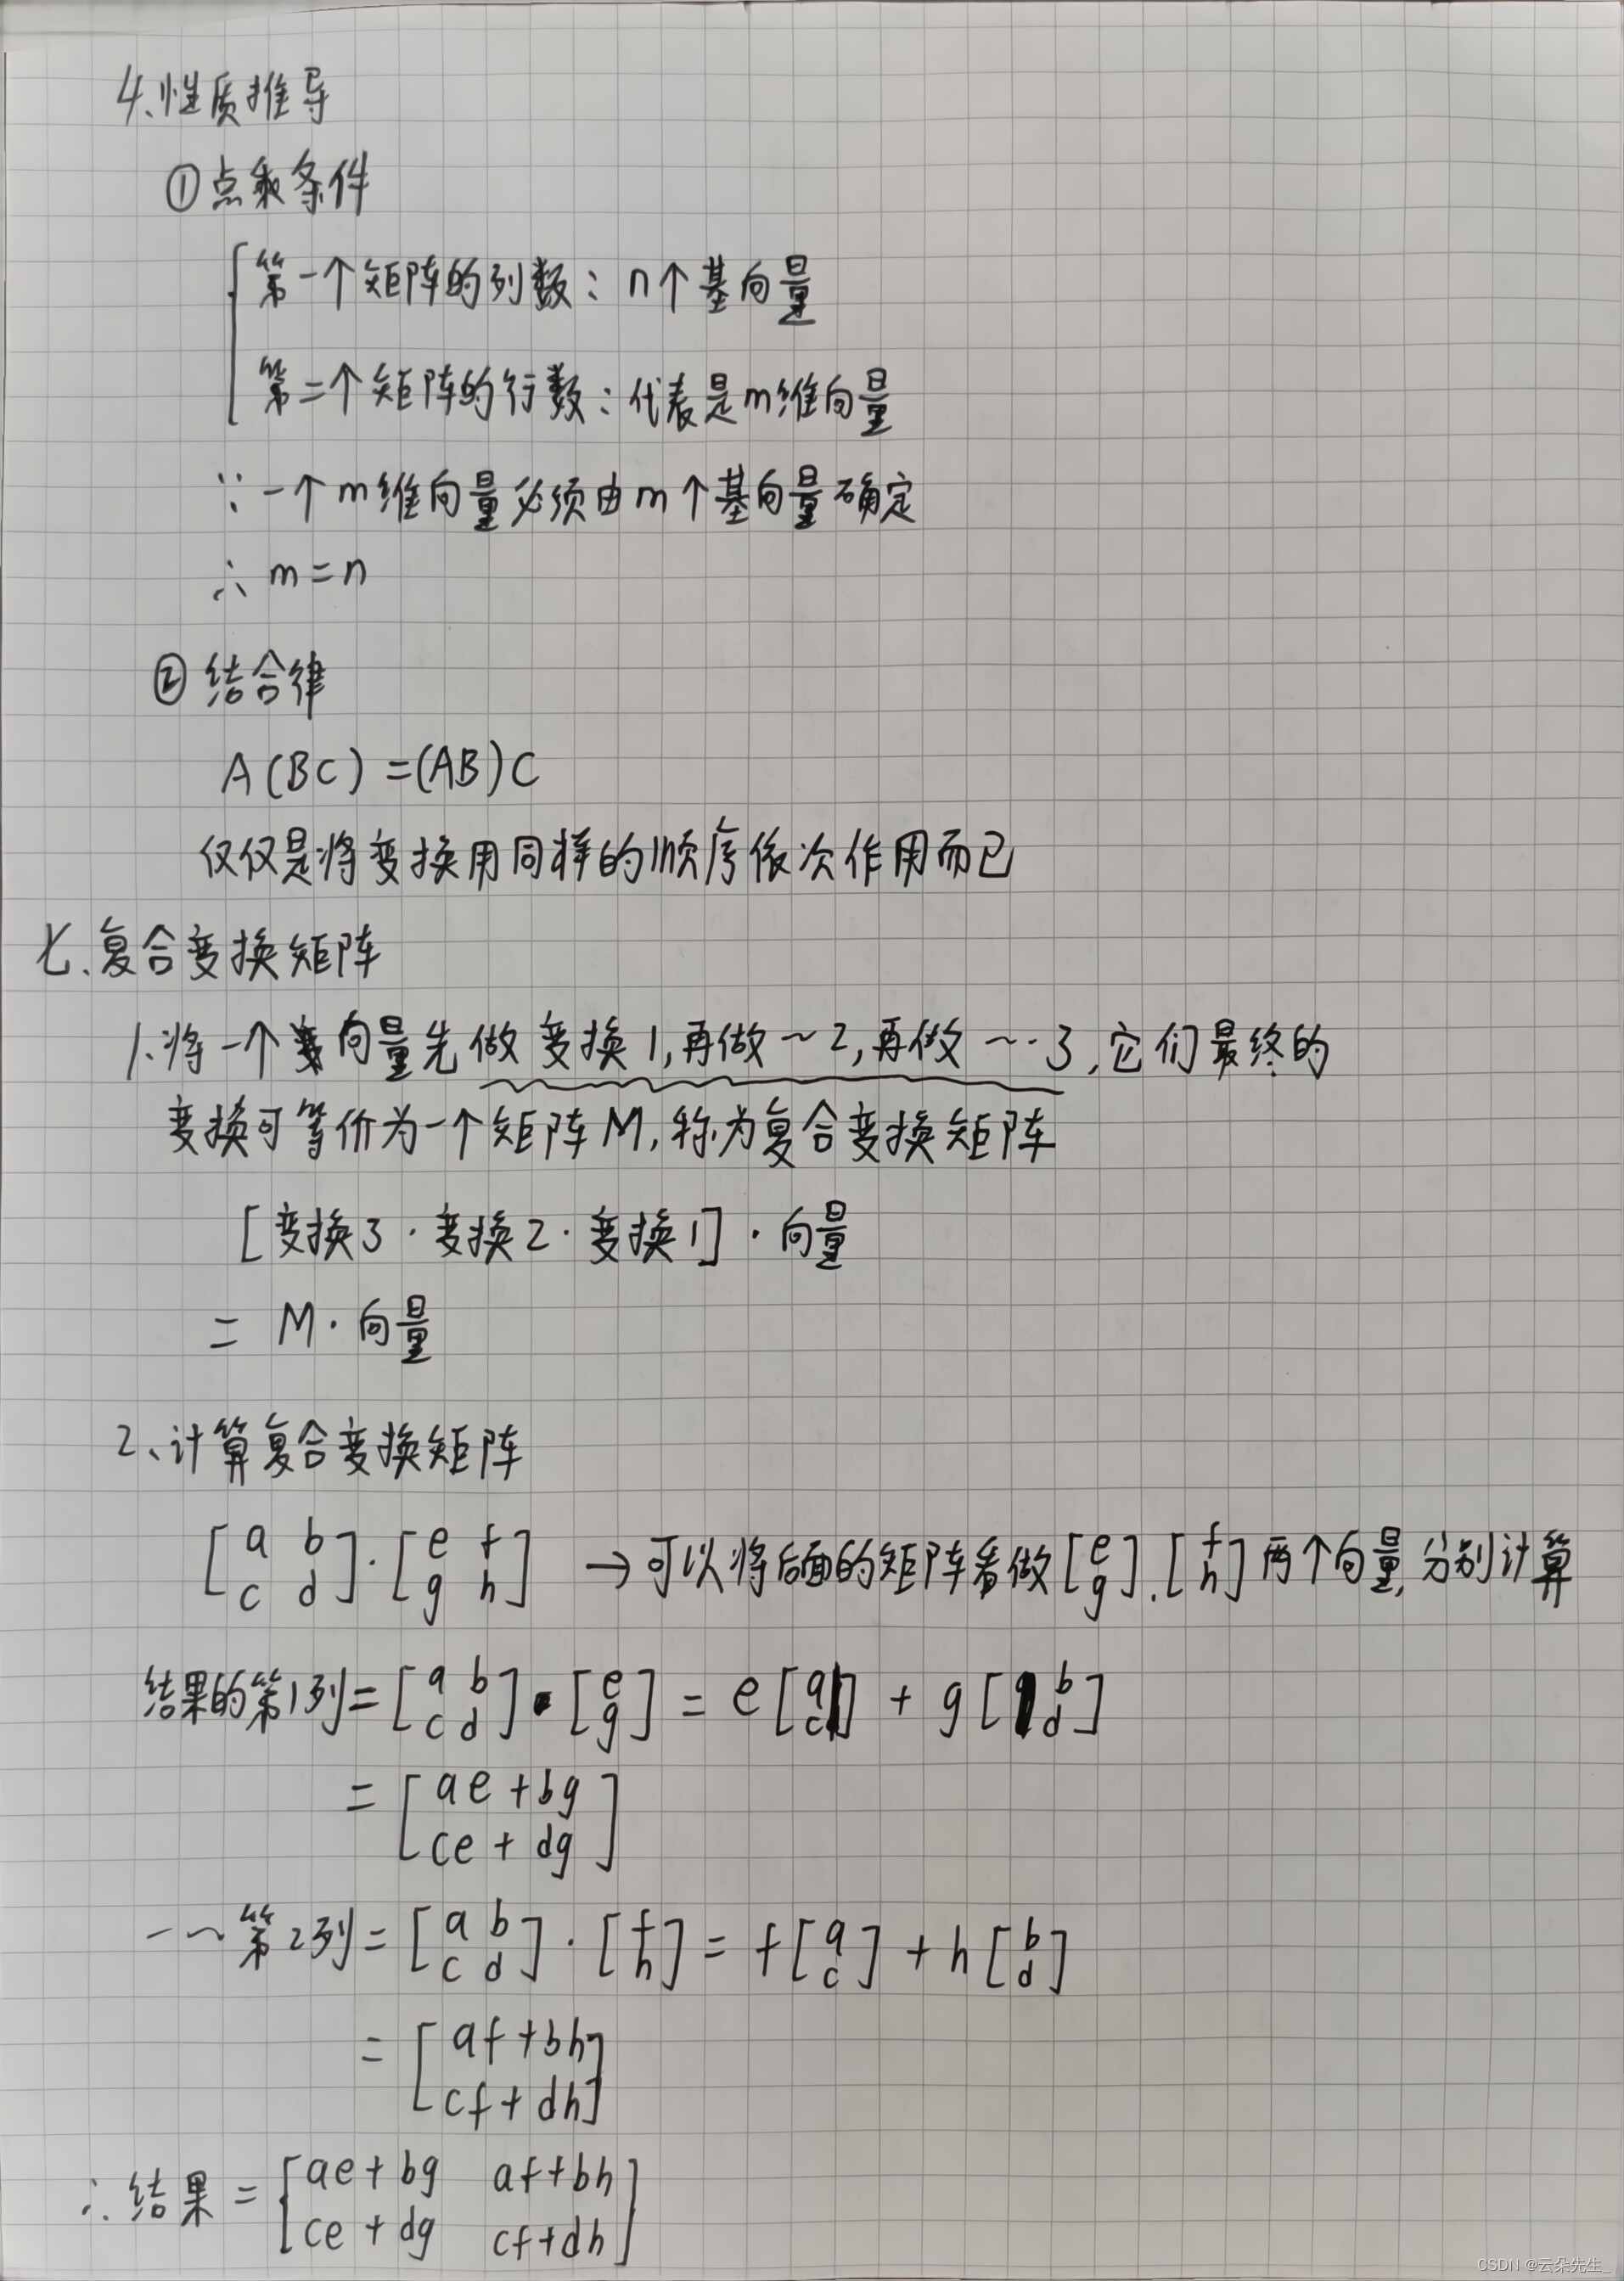 4、性质推导
①点乘条件
第一个矩阵的列数：n个基向量
第二个矩阵的行数：代表是m维向量
∵一个m维向量必须由m个基向量确定
∴ m=n
② 结合律
A(BC)=(AB)C
仅仅是将变换用同样的顺序依次作用而已
七、复合变换矩阵
1、将一个向量先做变换1，再做～2，再做～3，它们最终的
变换可等价为一个矩阵M，称为复合变换矩阵
[变换3·变换2·变换1]·向量
= M·向量
2、计算复合变换矩阵
[a b; c d]·[e f; g h] → 可以将后面的矩阵看做[e; g]、[f; h]两个向量，分别计算
结果的第1列=[a b; c d]·[e; g] = e[a; c] + g[b; d]
= [ae+bg; ce+dg]
～～第2列=[a b; c d]·[f; h] = f[a; c] + h[b; d]
= [af+bh; cf+dh]
∴结果=[ae+bg af+bh; ce+dg cf+dh]
CSDN @云朵先生_